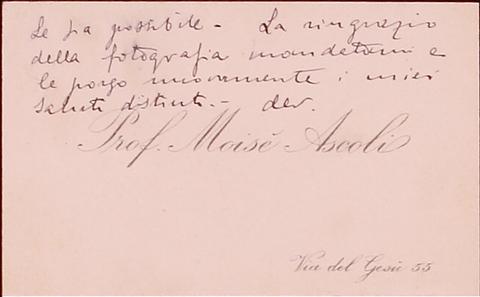 Le sia possibile – La ringrazio
della fotografia mandatami e
le porgo nuovamente i miei
saluti distinti. – dev.
Prof. Moisè Ascoli
Via del Gesù 55